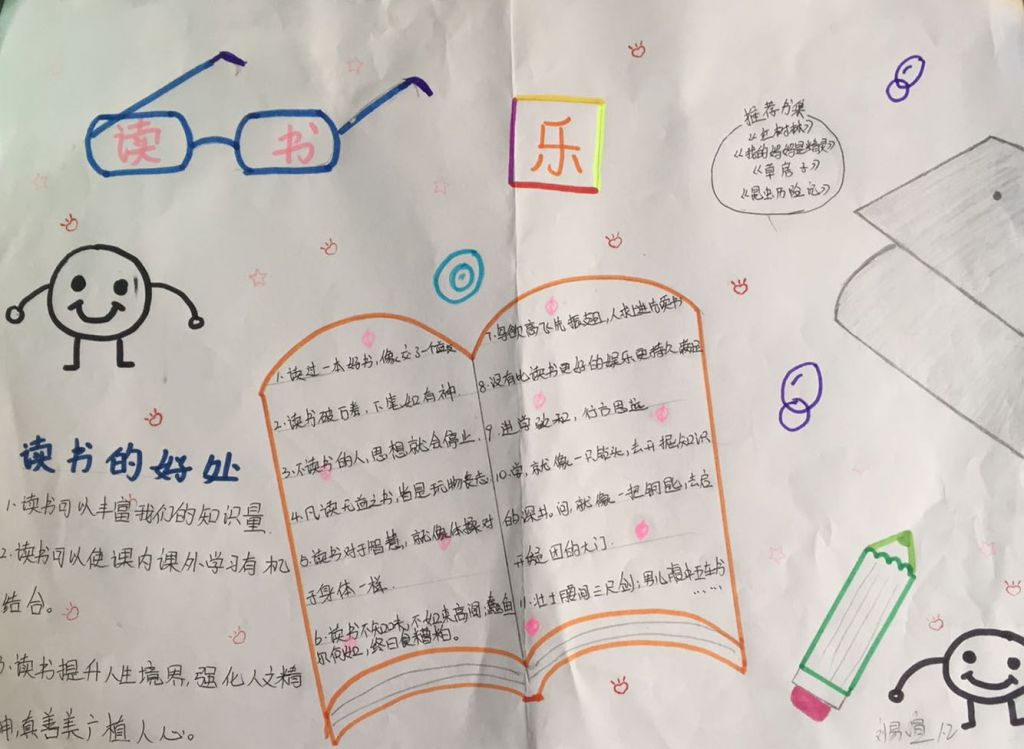 读书
乐
推荐书集
《红树林》
《我的妈妈是精灵》
《草房子》
《昆虫历险记》
1.读过一本好书,像交了一个益友
2.读书破万卷,下笔如有神.
3.不读书的人,思想就会停止.
4.凡读无益之书,皆是玩物丧志
5.读书对于智慧,就像体操对
于身体一样.
6.读书不知味,不如束高阁;蠹鱼
尔何如,终日食糟粕。
7.鸟欲高飞先振翅,人求上进先读书
8.没有比读书更好的娱乐更持久满足
9.进学致和,行方思远
10.学,就像一只钻头,去开掘知识
的深井.问,就像一把钥匙,去启
开疑团的大门.
11.壮士腰间三尺剑;男儿腹中五车书
……
读书的好处
1.读书可以丰富我们的知识量.
2.读书可以使课内课外学习有机
结合。
3.读书提升人生境界,强化人文精
神,真善美广植人心。
1.2